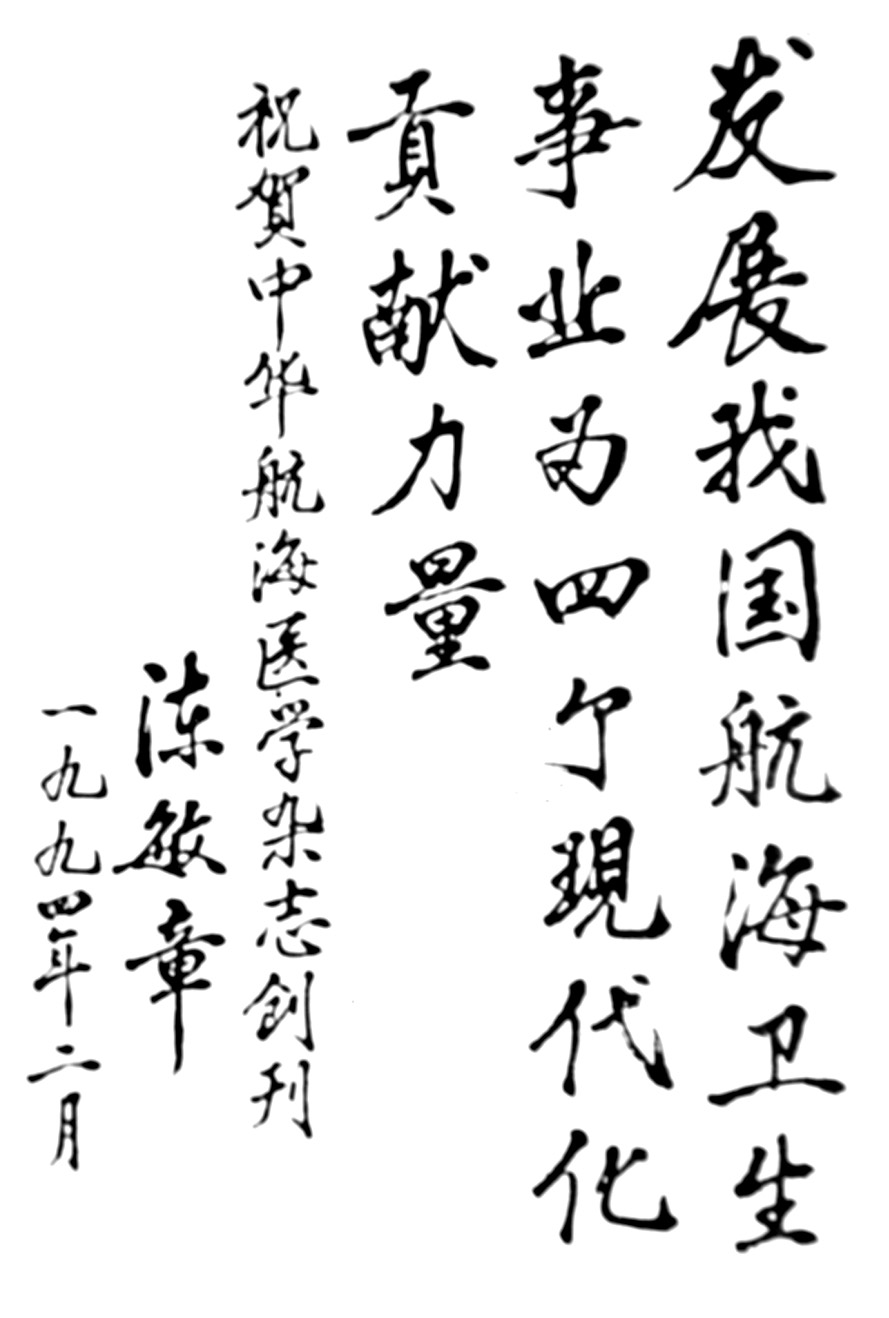 发展我国航海卫生
事业为四个现代化
贡献力量
祝贺中华航海医学杂志创刊
陈敏章
一九九四年二月